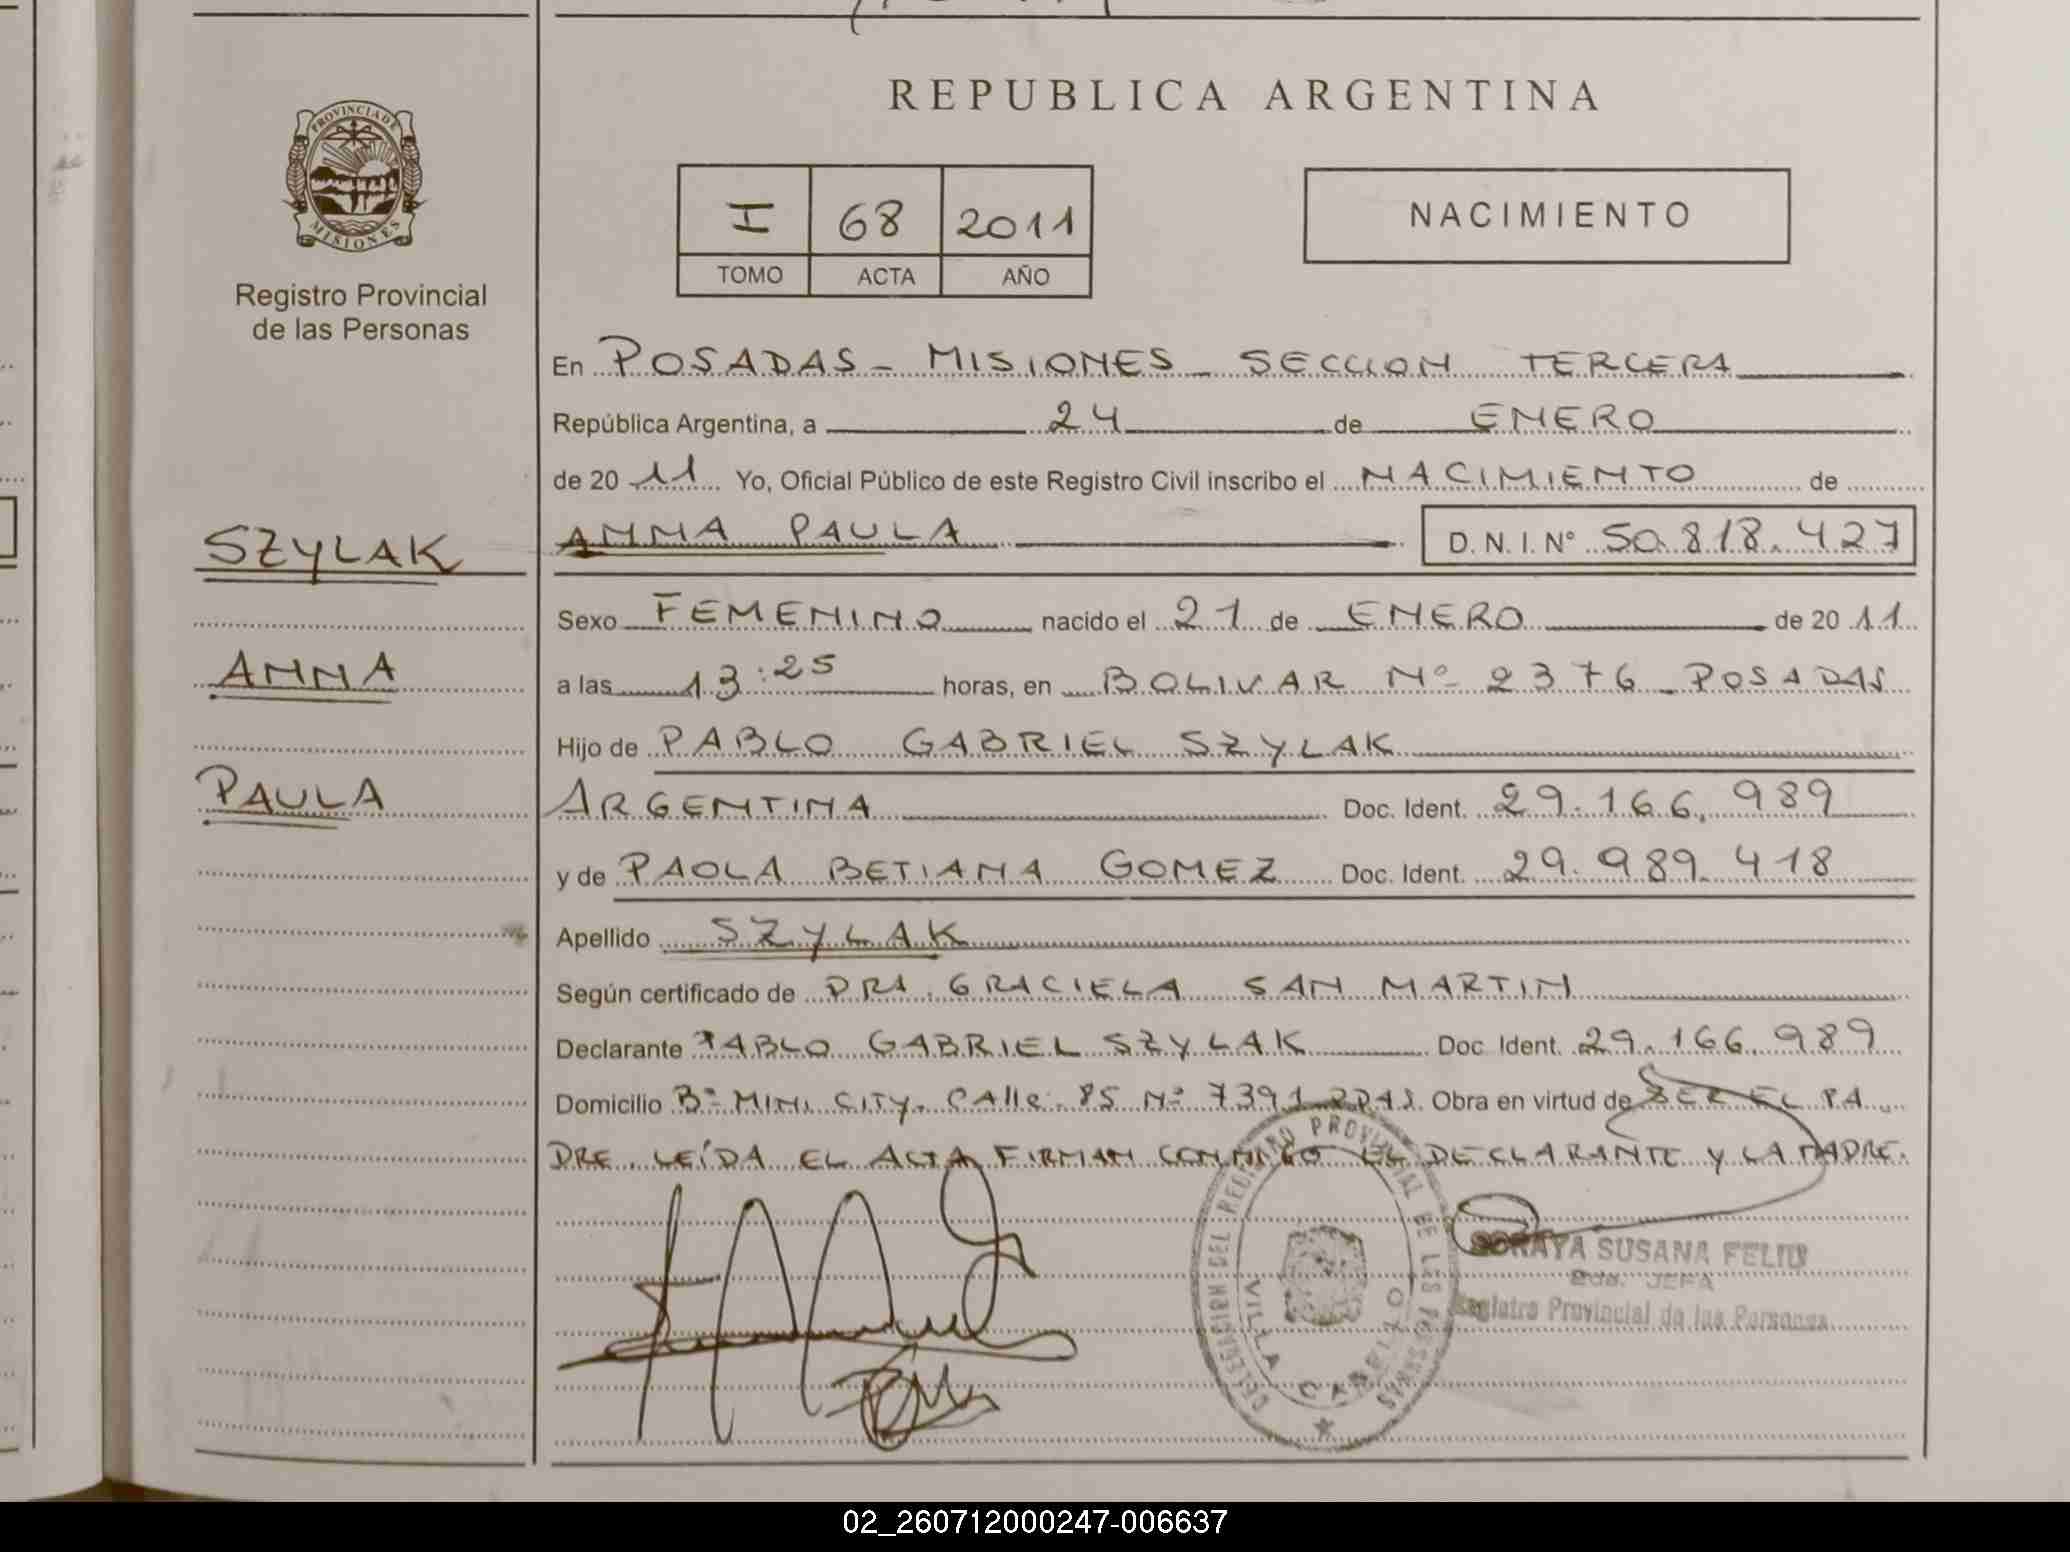 REPUBLICA ARGENTINA
PROVINCIA DE
MISIONES
Registro Provincial
de las Personas
I 68 2011
TOMO ACTA AÑO
NACIMIENTO
En POSADAS - MISIONES - SECCION TERCERA
República Argentina, a 24 de ENERO
de 20 11 Yo, Oficial Público de este Registro Civil inscribo el NACIMIENTO de
SZYLAK
ANNA PAULA D. N. I. N° 50.818.427
Sexo FEMENINO nacido el 21 de ENERO de 20 11
ANNA
a las 13:25 horas, en BOLIVAR Nº 2376 - POSADAS
Hijo de PABLO GABRIEL SZYLAK
PAULA
ARGENTINA Doc. Ident. 29.166.989
y de PAOLA BETIANA GOMEZ Doc. Ident. 29.989.418
Apellido SZYLAK
Según certificado de DRA. GRACIELA SAN MARTIN
Declarante PABLO GABRIEL SZYLAK Doc. Ident. 29.166.989
Domicilio Bº MINI CITY. Calle. 85 Nº 7391 Obra en virtud de SER EL PA
DRE. LEÍDA EL ACTA FIRMAN CONMIGO EL DECLARANTE Y LA MADRE.
DELEGACION DEL REGISTRO PROVINCIAL DE LAS PERSONAS
VILLA CABELLO
SORAYA SUSANA FELIU
JEFA
Registro Provincial de las Personas
02_260712000247-006637